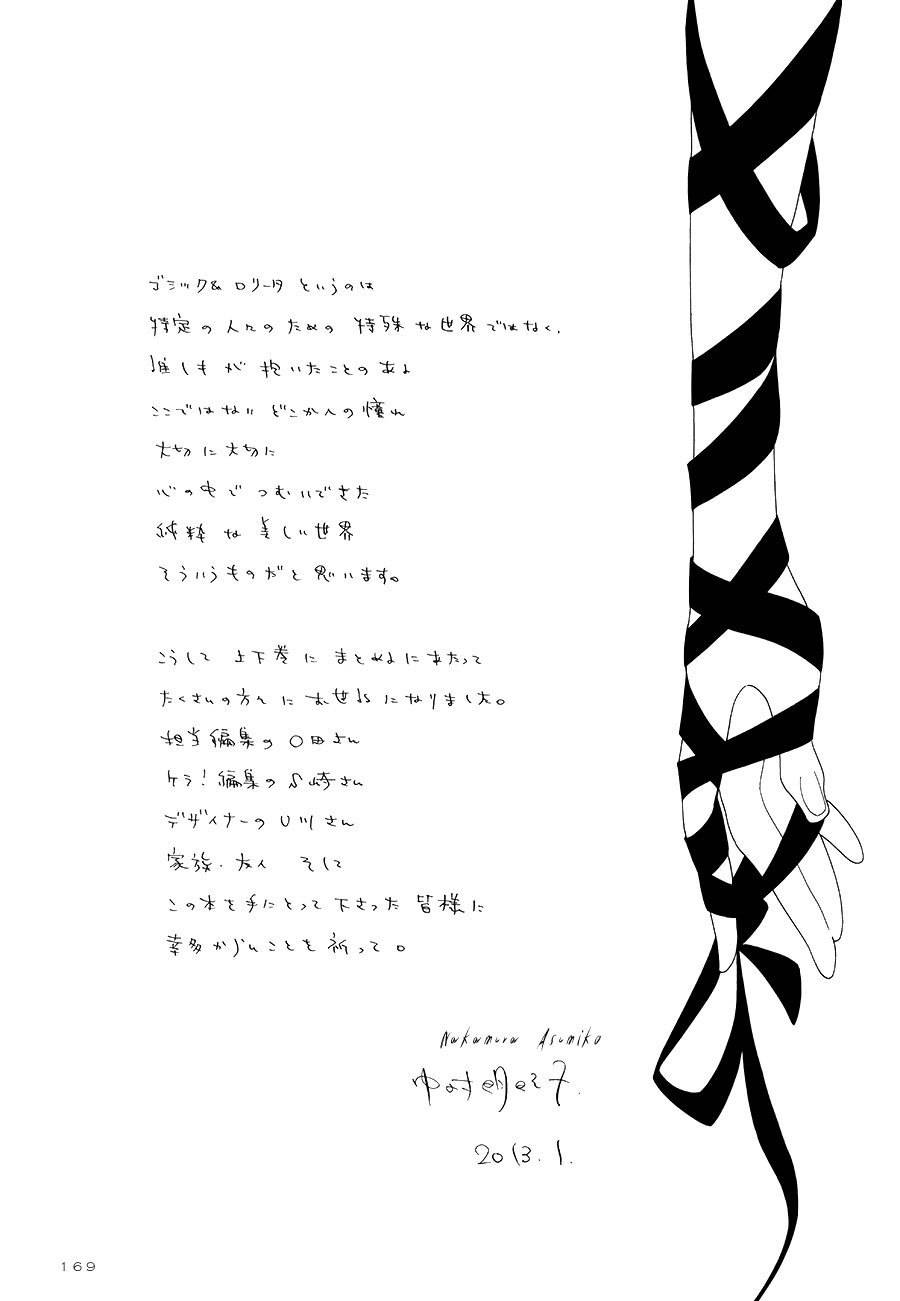 ゴシック&ロリータというのは
特定の人々のための特殊な世界ではなく、
誰しもが抱いたことのある
ここではないどこかへの憧れ
大切に大切に
心の中でつむいできた
純粋な美しい世界
そういうものだと思います。
こうして上下巻にまとめるにあたって
たくさんの方々にお世話になりました。
担当編集の〇田さん
ケラ!編集の 崎さん
デザイナーのU川さん
家族・友人 そして
この本を手にとって下さった皆様に
幸多からんことを祈って。
Nakamura Asumiko
中村明日美子
2013.1.
169